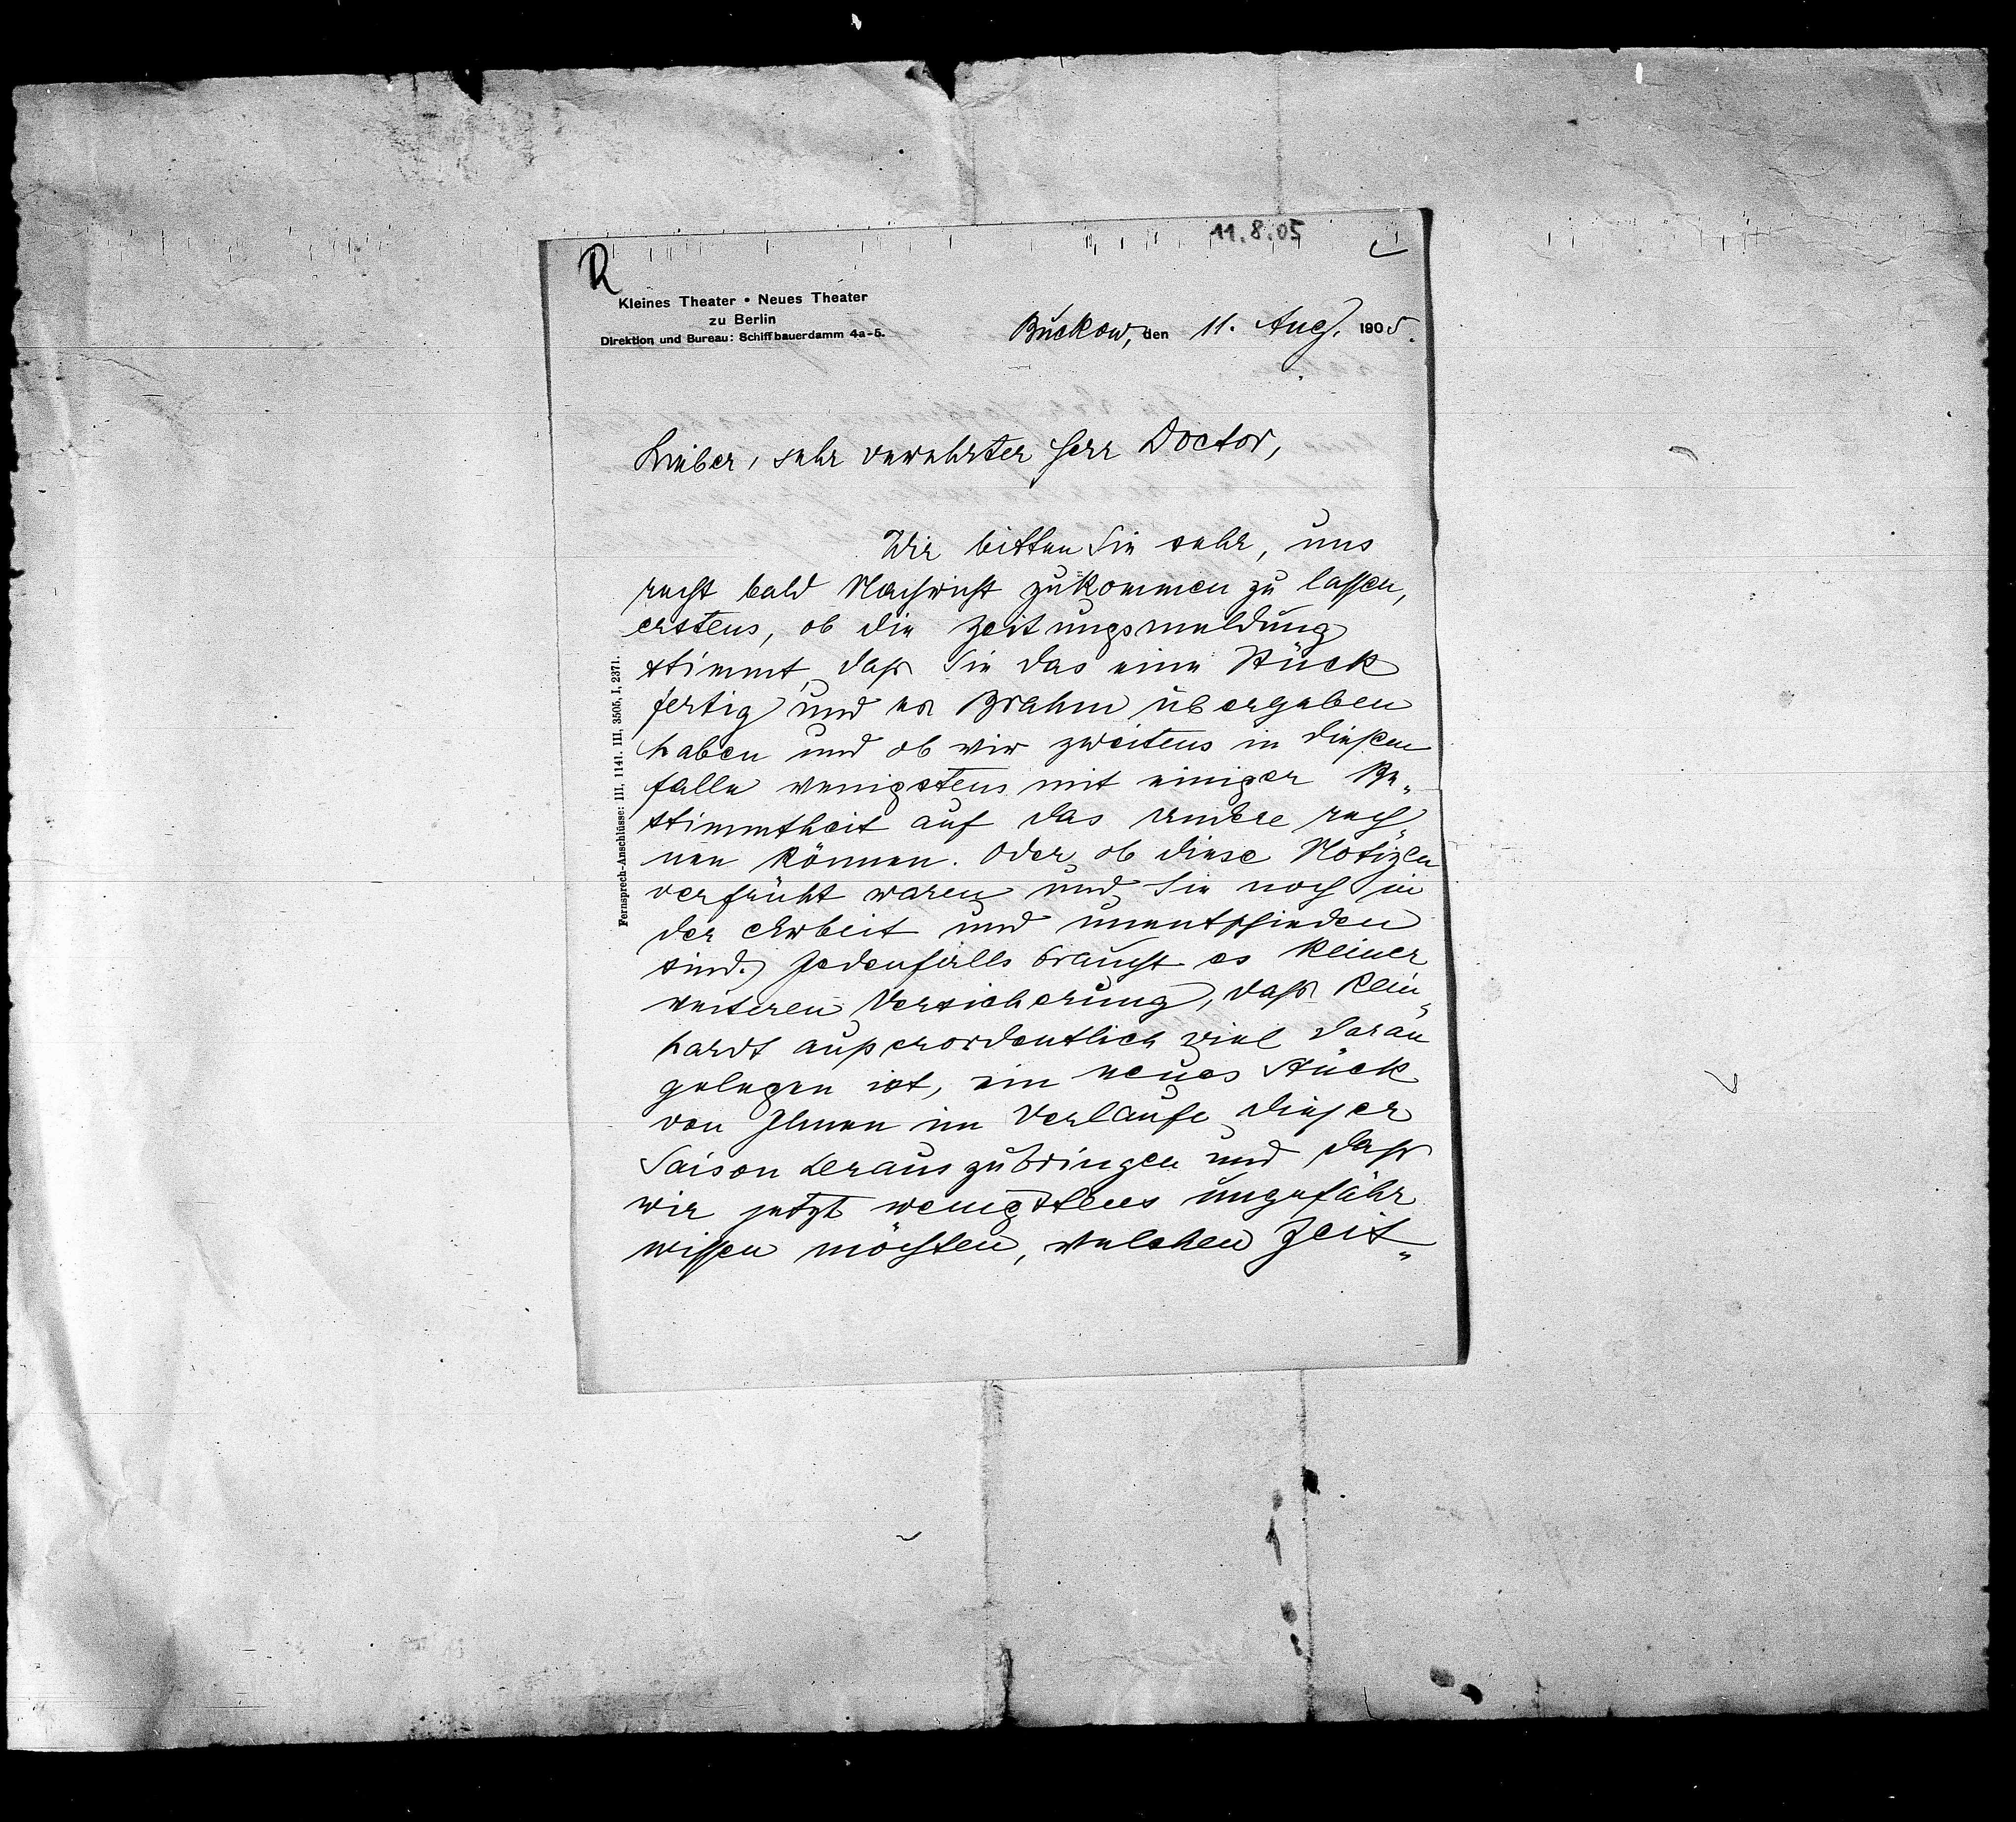 11.8.05
R
Kleines Theater • Neues Theater
zu Berlin
Direktion und Bureau: Schiffbauerdamm 4a-5.
Buckow, den 11. Aug. 1905.
Lieber, sehr verehrter Herr Doctor,
Wir bitten Sie sehr, uns
recht bald Nachricht zukommen zu lassen,
erstens, ob die Zeitungsmeldung
stimmt, daß Sie das eine Stück
fertig und es Brahm übergeben
haben und ob wir zweitens in diesem
Falle wenigstens mit einiger Be„
stimmtheit auf das andere rech„
nen können. Oder, ob diese Notizen
verfrüht waren und Sie noch in
der Arbeit und unentschieden
sind. Jedenfalls braucht es keiner
weiteren Versicherung, daß Rein„
hardt außerordentlich viel daran
gelegen ist, ein neues Stück
von Ihnen im Verlaufe dieser
Saison herauszubringen und daß
wir jetzt wenigstens ungefähr
wissen möchten, welchen Zeit„
Fernsprech-Anschlüsse: III, 1141. III, 3505, I, 2371.